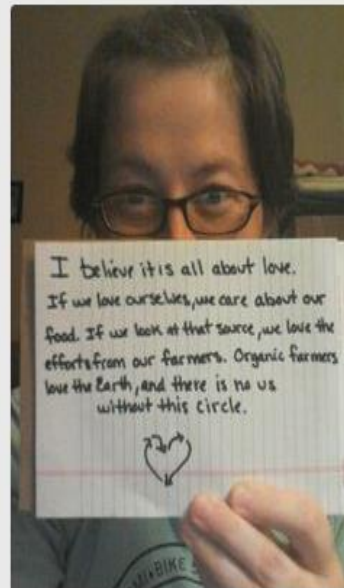 I believe it is all about love.
If we love ourselves, we care about our
food. If we look at that source, we love the
efforts from our farmers. Organic farmers
love the Earth, and there is no us
without this circle.
MI•BIKE